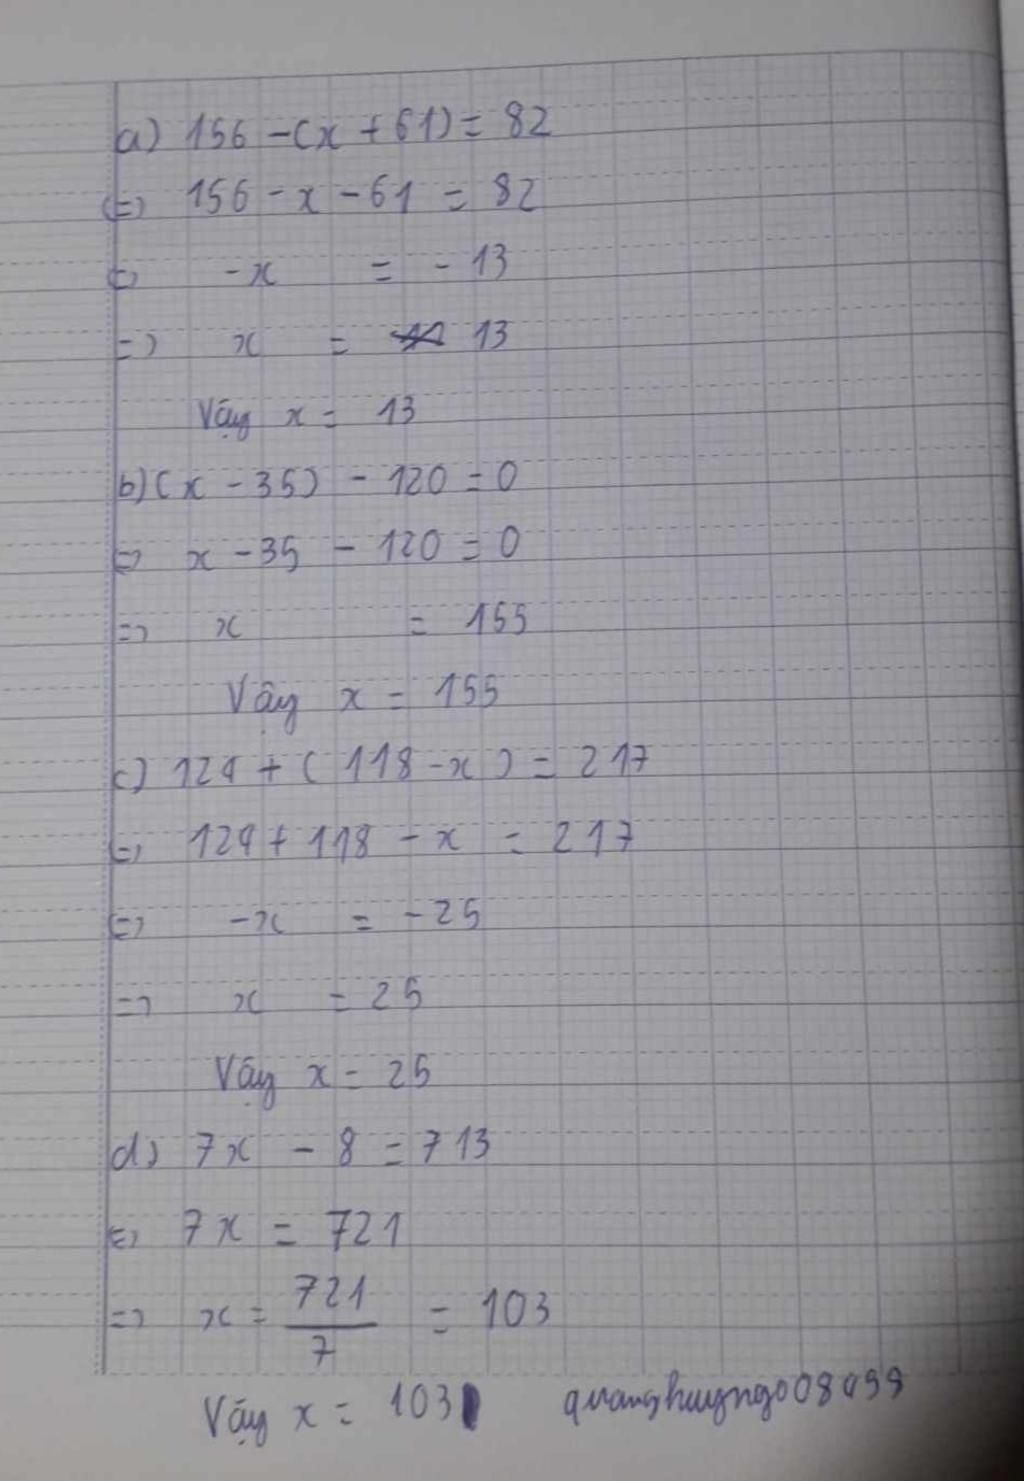 a) 156 - (x + 61) = 82
(=) 156 - x - 61 = 82
(=) -x = - 13
=) x = 13
Vậy x = 13
b) (x - 35) - 120 = 0
(=) x - 35 - 120 = 0
=) x = 155
Vậy x = 155
c) 124 + ( 118 - x ) = 217
(=) 124 + 118 - x = 217
(=) -x = -25
=) x = 25
Vậy x = 25
d) 7x - 8 = 713
(=) 7x = 721
=) x = 721/7 = 103
Vậy x = 103 quanghuyngo08499